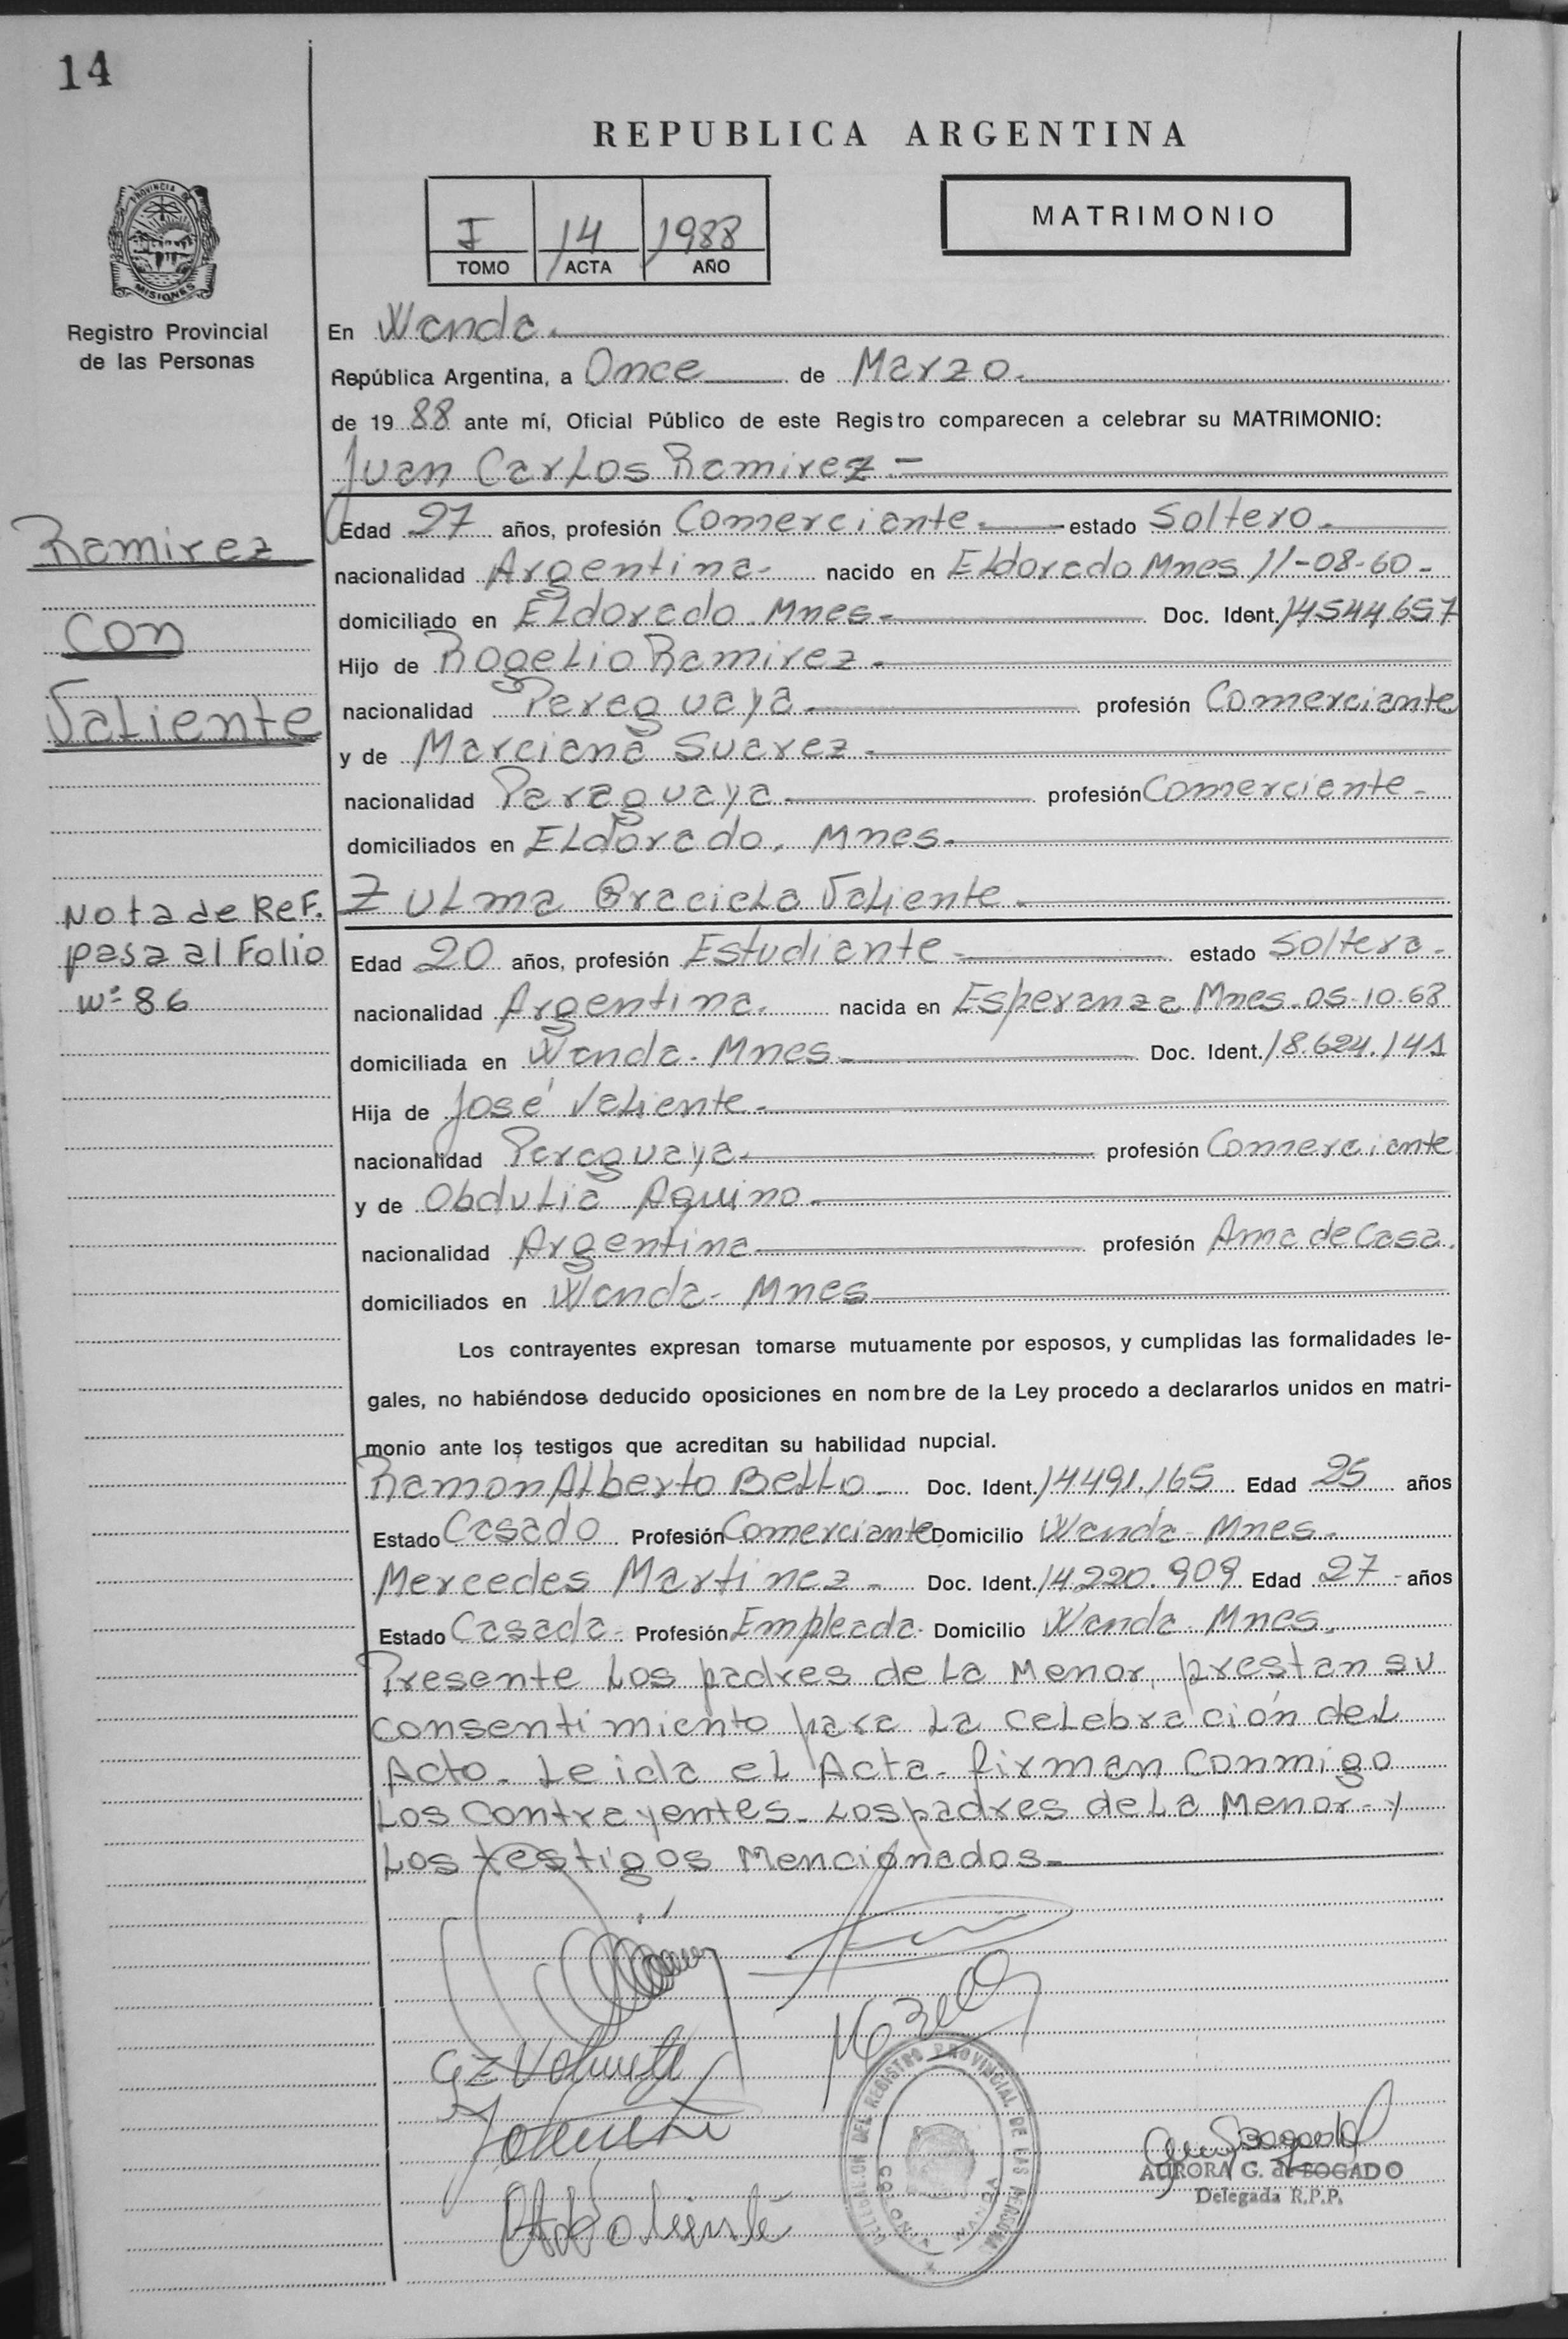 14
REPUBLICA ARGENTINA
PROVINCIA DE
MISIONES
I 14 1988
TOMO ACTA AÑO
MATRIMONIO
Registro Provincial
de las Personas
En Wanda.
República Argentina, a Once de Marzo.
de 19 88 ante mí, Oficial Público de este Registro comparecen a celebrar su MATRIMONIO:
Juan Carlos Ramirez.-
Ramirez
con
Valiente
Edad 27 años, profesión Comerciante.- estado Soltero.
nacionalidad Argentina- nacido en Eldorado Mnes 11-08-60-
domiciliado en Eldorado. Mnes- Doc. Ident. 14544.657
Hijo de Rogelio Ramirez.
nacionalidad Paraguaya. profesión Comerciante
y de Marciana Suarez.
nacionalidad Paraguaya profesión Comerciante-
domiciliados en Eldorado. Mnes.
Nota de Ref.
pasa al Folio
Nº 86
Zulma Graciela Valiente.
Edad 20 años, profesión Estudiante- estado Soltera-
nacionalidad Argentina. nacida en Esperanza Mnes.05-10-68
domiciliada en Wanda. Mnes. Doc. Ident. 18.624.141
Hija de José Valiente.
nacionalidad Paraguaya. profesión Comerciante
y de Obdulia Aquino.
nacionalidad Argentina profesión Ama de Casa.
domiciliados en Wanda- Mnes
Los contrayentes expresan tomarse mutuamente por esposos, y cumplidas las formalidades le-
gales, no habiéndose deducido oposiciones en nombre de la Ley procedo a declararlos unidos en matri-
monio ante los testigos que acreditan su habilidad nupcial.
Ramon Alberto Bello- Doc. Ident. 14491.165 Edad 25 años
Estado Casado Profesión Comerciante Domicilio Wanda- Mnes.
Mercedes Martinez- Doc. Ident. 14.220.909 Edad 27 años
Estado Casada- Profesión Empleada- Domicilio Wanda- Mnes.
Presente los padres de la menor, prestan su
consentimiento para la celebración del
Acto. Leida el Acta- firman conmigo
los contrayentes- los padres de la menor- y
los testigos mencionados-
DELEGACION DEL REGISTRO PROVINCIAL DE LAS PERSONAS
COLONIA WANDA
AURORA G. de BOGADO
Delegada R.P.P.